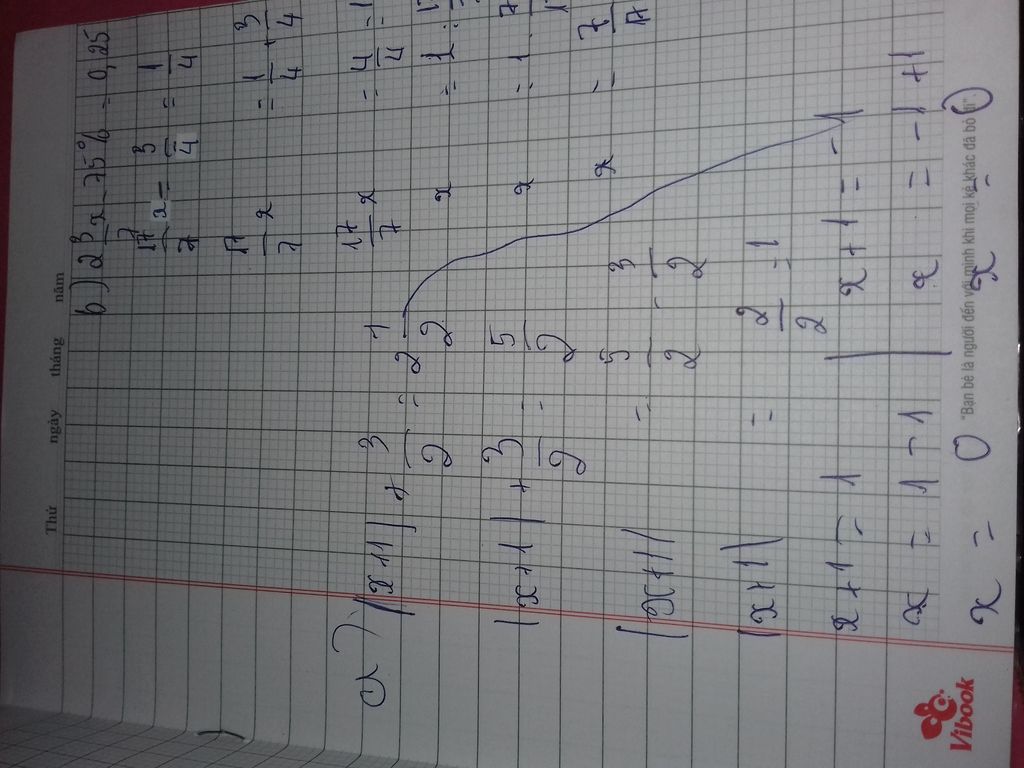 Thứ ngày tháng năm
b) 2 3/7 x - 75% = 0,25
17/7 x = 3/4 = 1/4
17/7 x = 1/4 + 3/4
17/7 x = 4/4 = 1
x = 1 :
x = 1 .
x = 7/17
a) |x+1| + 3/2 = 2 1/2
|x+1| + 3/2 = 5/2
|x+1| = 5/2 - 3/2
|x+1| = 2/2 = 1
x+1 = 1 | x+1 = -1
x = 1 - 1 | x = -1 + 1
x = 0 x =
"Bạn bè là người đến với mình khi mọi kẻ khác đã bỏ đi"
Vibook